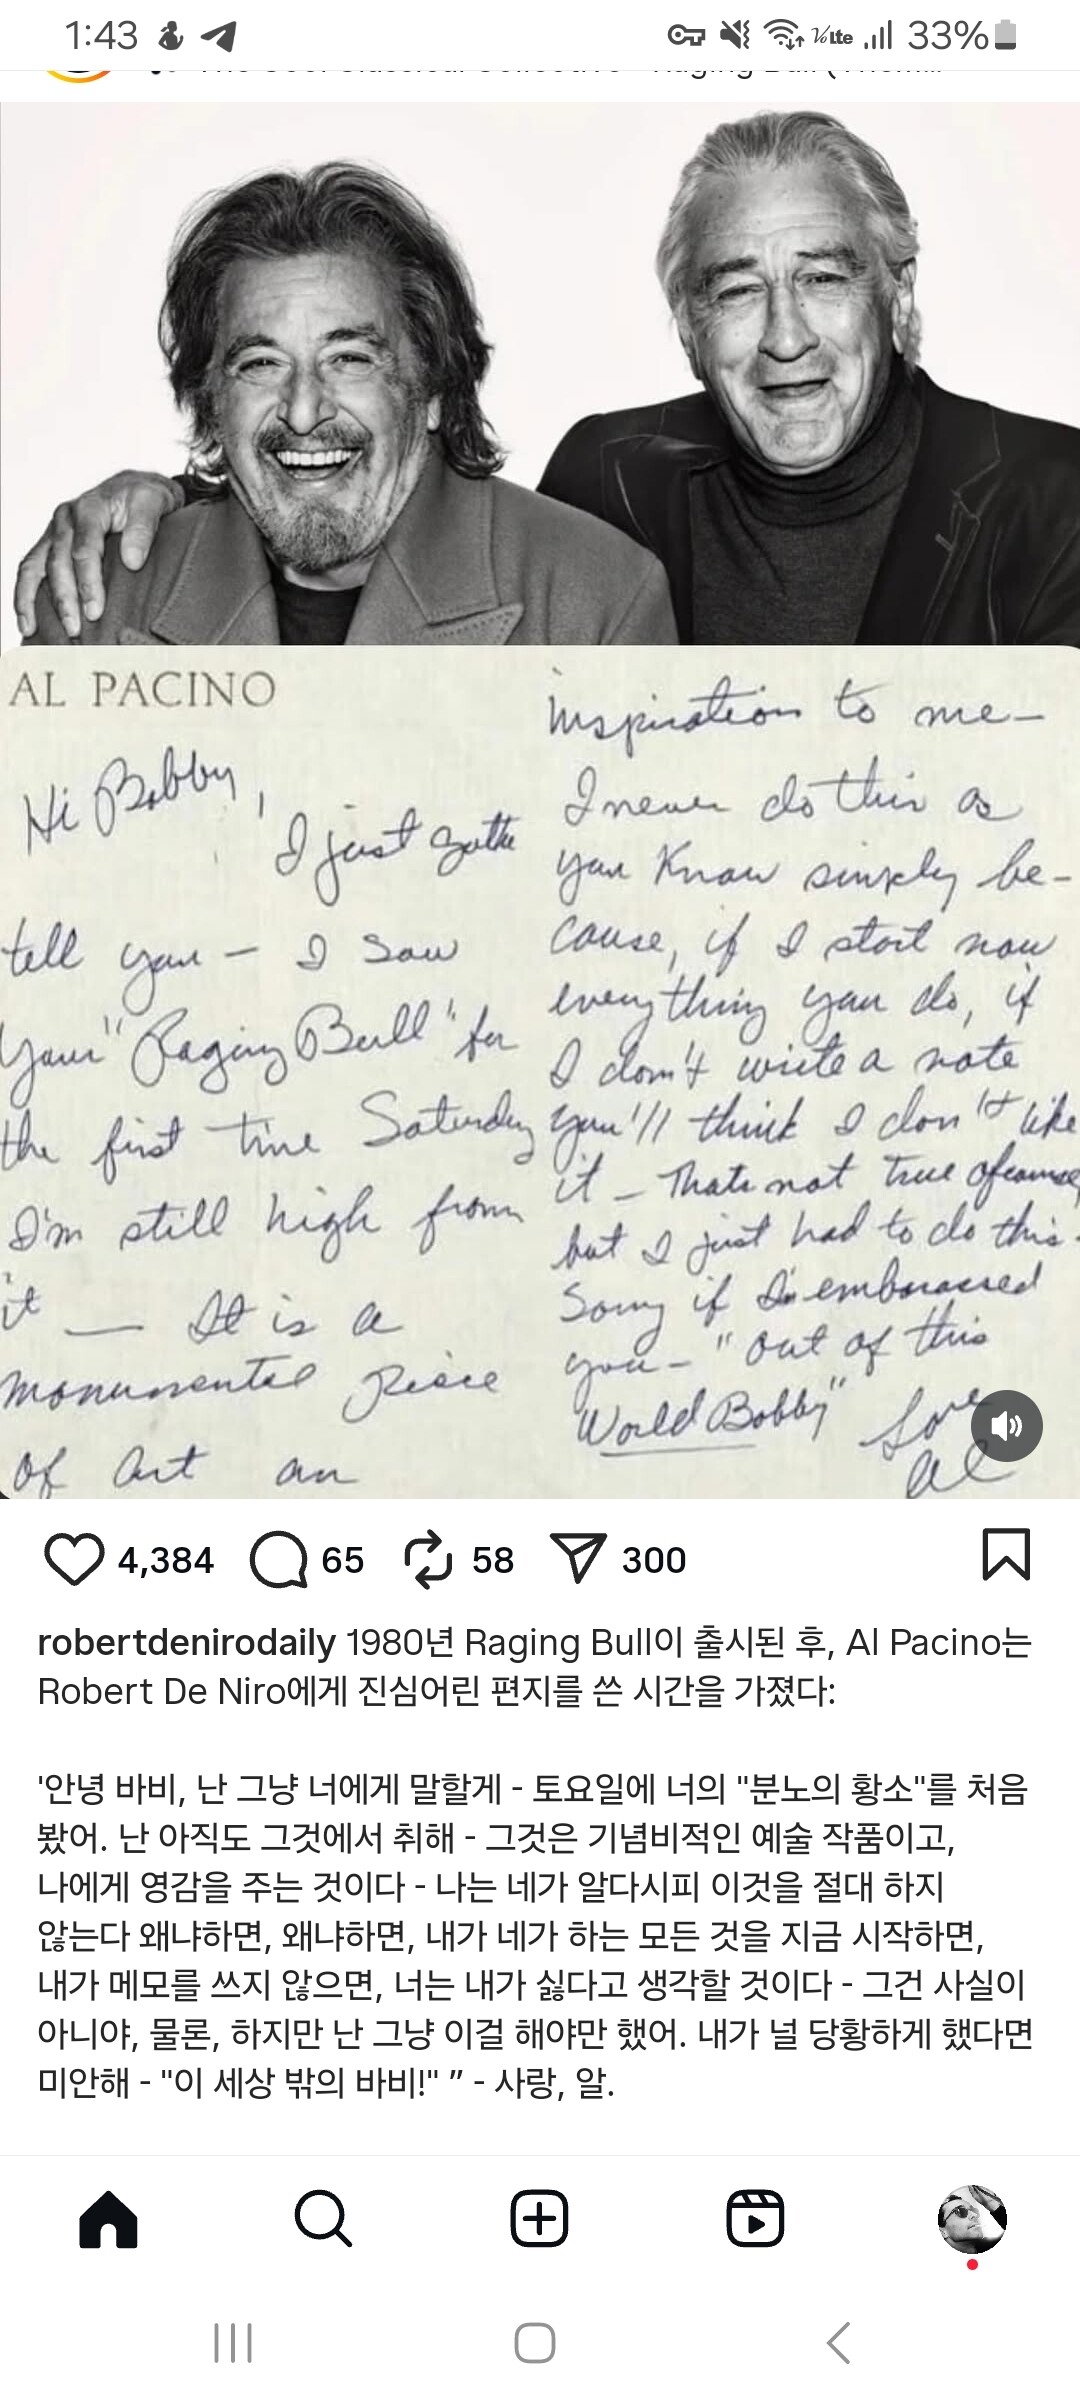 1:43
Vo lte 33%
AL PACINO
Hi Bobby,
I just gotta
tell you – I saw
your "Raging Bull" for
the first time Saturday
I'm still high from
it — It is a
monumental piece
of art an
inspiration to me –
I never do this as
you know simply be-
cause, if I start now
everything you do, if
I don't write a note
you'll think I don't like
it – Thats not true ofcourse,
but I just had to do this.
Sorry if I embarassed
you – "out of this
World Bobby"
Love
Al
4,384 65 58 300
robertdenirodaily 1980년 Raging Bull이 출시된 후, Al Pacino는
Robert De Niro에게 진심어린 편지를 쓴 시간을 가졌다:
'안녕 바비, 난 그냥 너에게 말할게 - 토요일에 너의 "분노의 황소"를 처음
봤어. 난 아직도 그것에서 취해 - 그것은 기념비적인 예술 작품이고,
나에게 영감을 주는 것이다 - 나는 네가 알다시피 이것을 절대 하지
않는다 왜냐하면, 왜냐하면, 내가 네가 하는 모든 것을 지금 시작하면,
내가 메모를 쓰지 않으면, 너는 내가 싫다고 생각할 것이다 - 그건 사실이
아니야, 물론, 하지만 난 그냥 이걸 해야만 했어. 내가 널 당황하게 했다면
미안해 - "이 세상 밖의 바비!" ” - 사랑, 알.